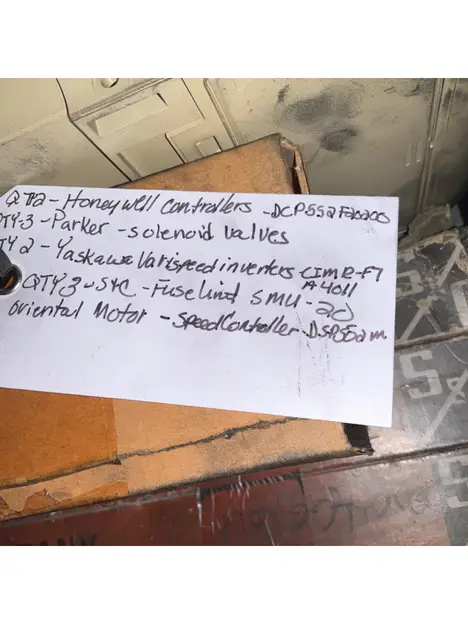 QTY 2 - Honeywell Controllers - DCP552F20200
QTY-3 - Parker - solenoid valves
QTY 2 - Yaskawa Varispeed inverters CIMR-F7
A4011
QTY 3 - S&C - Fuse Limit SMU-20
Oriental Motor - Speed Controller DSP552M
S
S